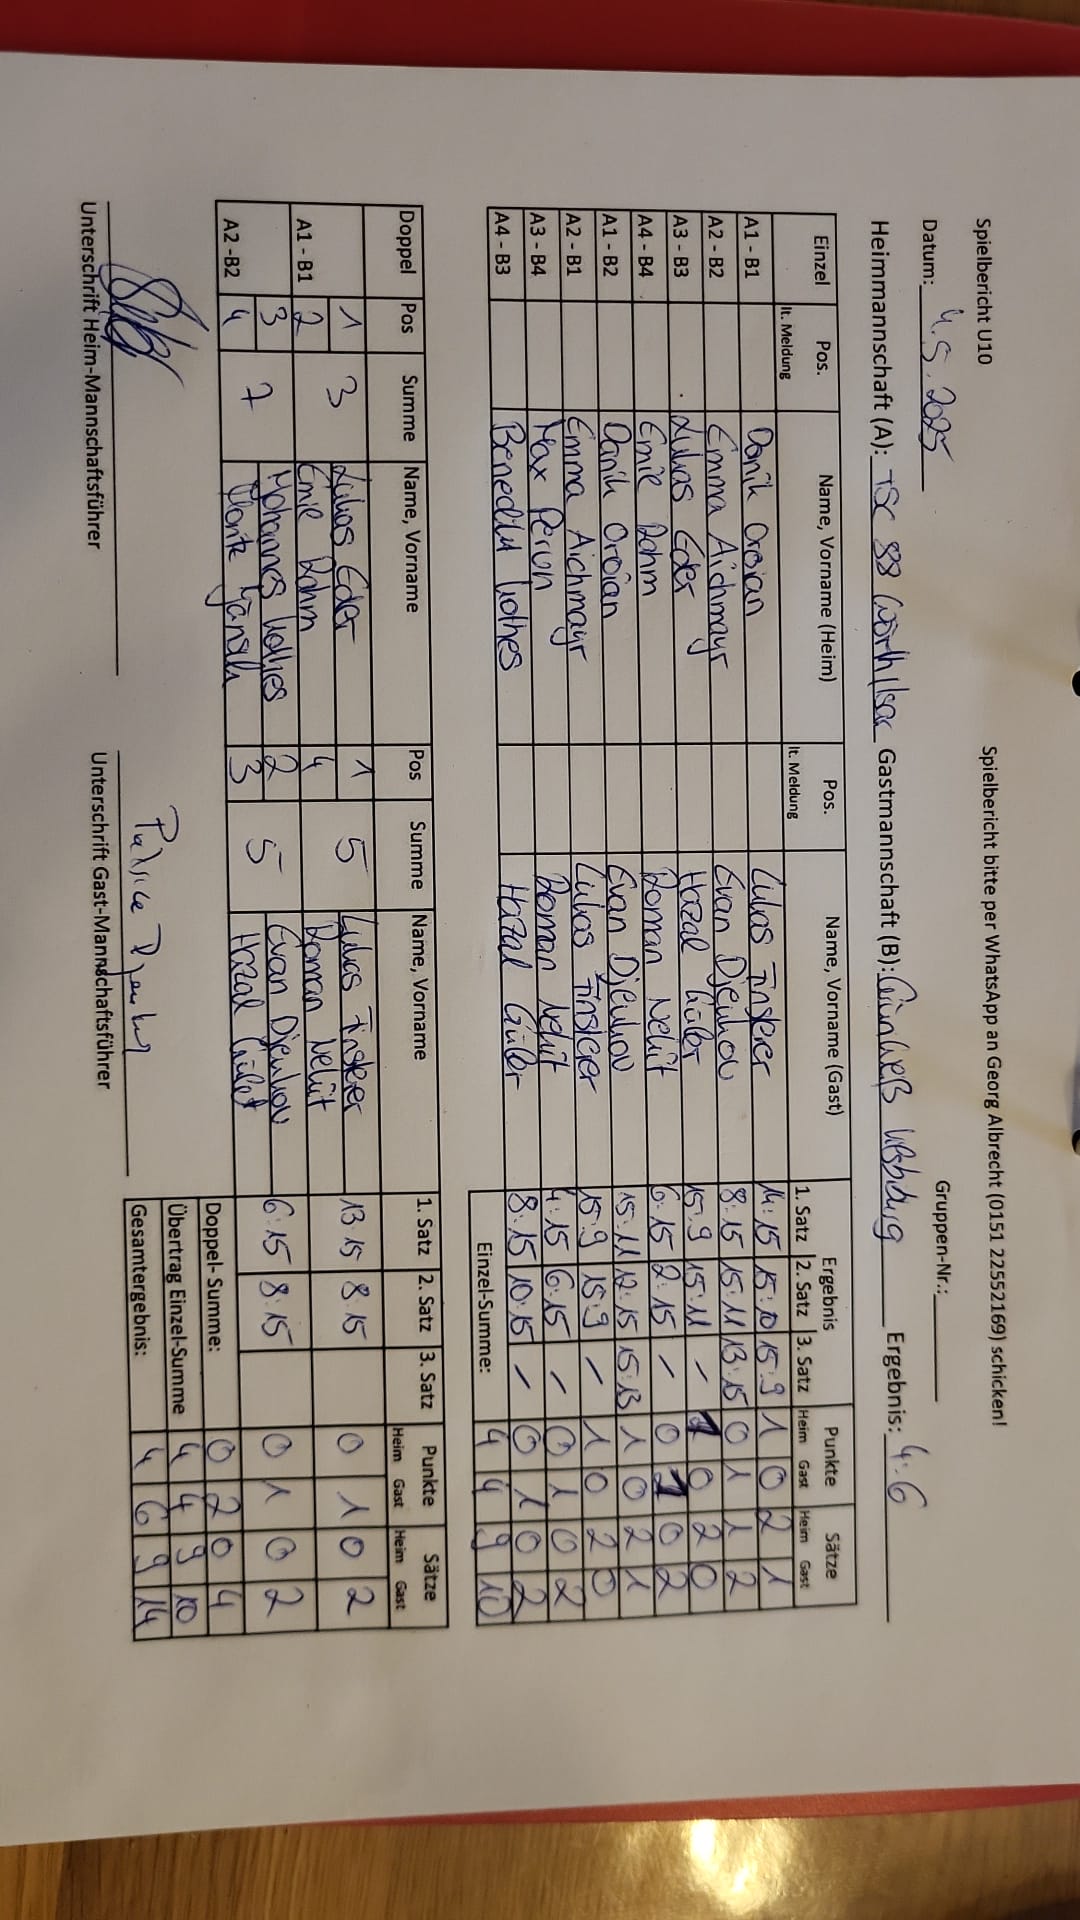 Spielbericht U10 Spielbericht bitte per WhatsApp an Georg Albrecht (0151 22552169) schicken!
Datum: 4.5.2025 Gruppen-Nr.:
Heimmannschaft (A): TSC 88 Wörth/Isar Gastmannschaft (B): Grünweiß Ergebnis: 4:6
Einzel Pos. Name, Vorname (Heim) Pos. Name, Vorname (Gast) Ergebnis Punkte Sätze
lt. Meldung lt. Meldung 1. Satz 2. Satz 3. Satz Heim Gast Heim Gast
A1 - B1 Danik Oroian Lukas Finsterer 14:15 15:10 15:9 1 0 2 1
A2 - B2 Emma Aichmayr Evan Djeukou 8:15 15:11 13:15 0 1 1 2
A3 - B3 Lukas Eder Hazal Güler 15:9 15:11 - 1 0 2 0
A4 - B4 Emie Rahm Roman Nelüt 6:15 2:15 - 0 1 0 2
A1 - B2 Danik Oroian Evan Djeukou 15:11 12:15 15:13 1 0 2 1
A2 - B1 Emma Aichmayr Lukas Finsterer 15:9 15:9 - 1 0 2 0
A3 - B4 Max Perun Roman Nelüt 4:15 6:15 - 0 1 0 2
A4 - B3 Benedikt Lothes Hazal Güler 8:15 10:15 - 0 1 0 2
Einzel-Summe: 4 4 9 10
Doppel Pos Summe Name, Vorname Pos Summe Name, Vorname 1. Satz 2. Satz 3. Satz Punkte Sätze
Heim Gast Heim Gast
1 3 Lukas Eder 1 5 Lukas Finsterer 13:15 8:15 0 1 0 2
A1 - B1 2 Emie Rahm 4 Roman Nelüt
3 7 Lothes 2 5 Evan Djeukou 6:15 8:15 0 1 0 2
A2 -B2 4 3 Hazal Güler
Doppel- Summe: 0 2 0 4
Übertrag Einzel-Summe 4 4 9 10
Gesamtergebnis: 4 6 9 14
Unterschrift Heim-Mannschaftsführer Unterschrift Gast-Mannschaftsführer